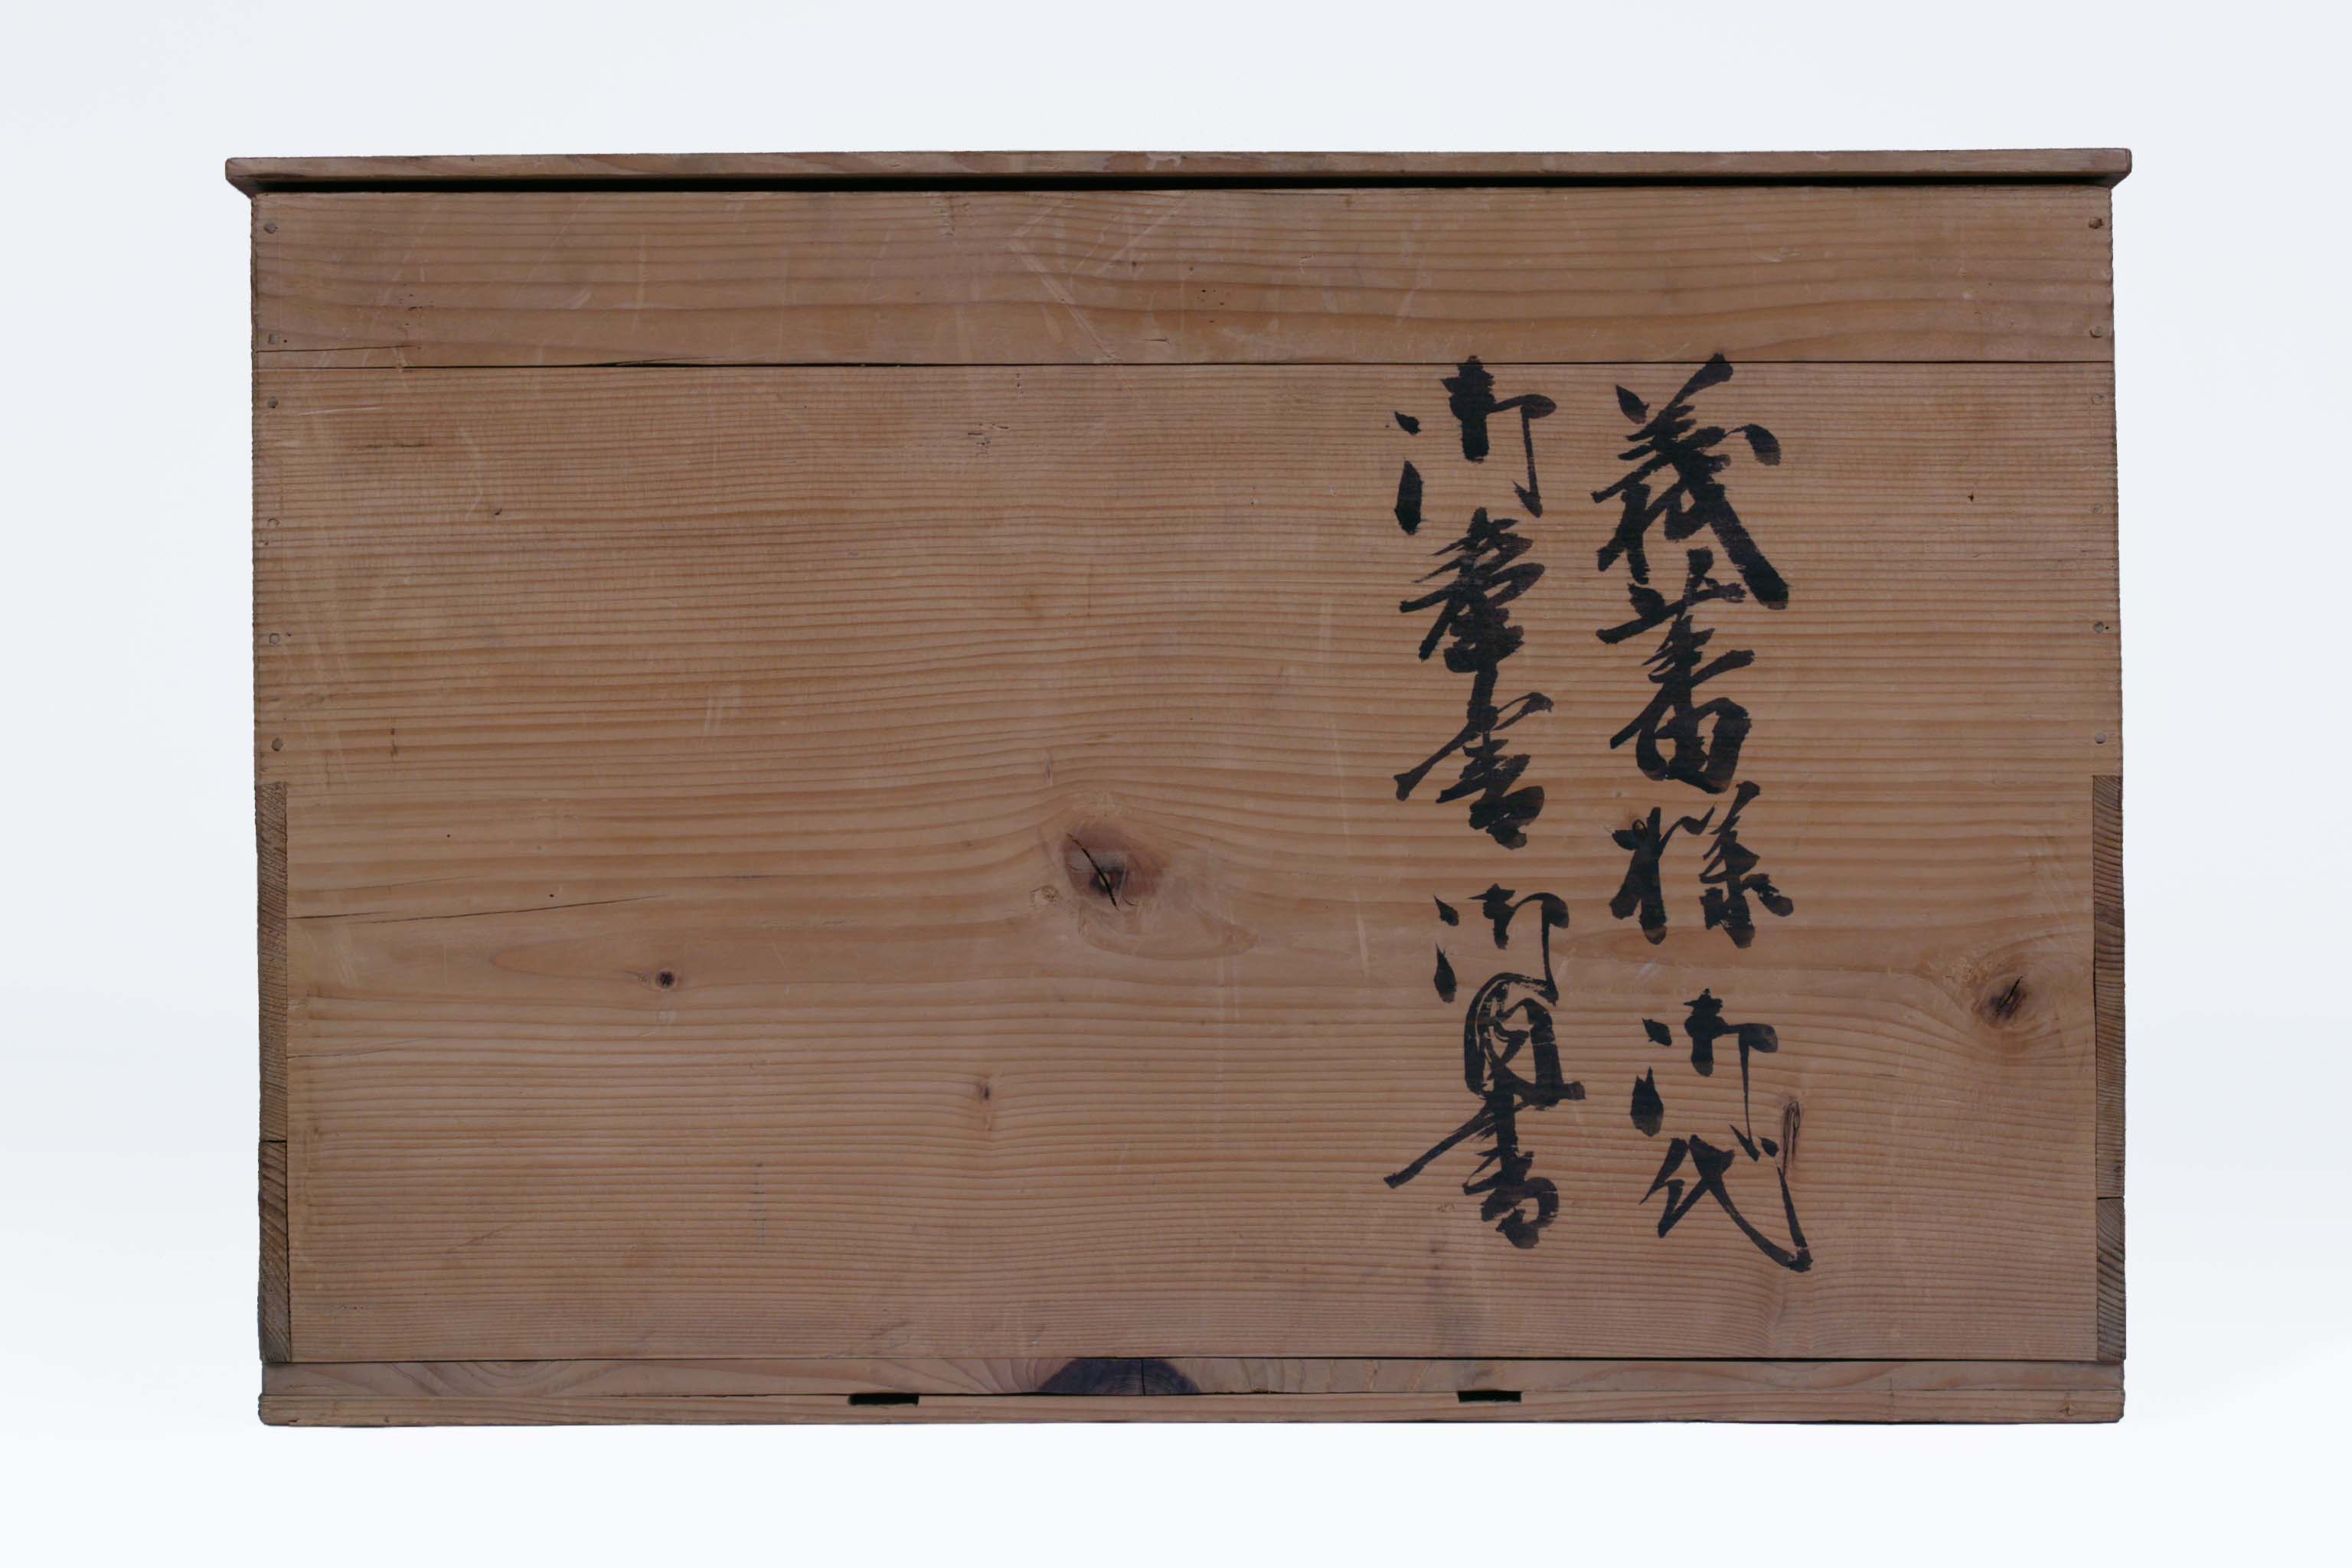 義蕃様 御代
御奉書 御直書